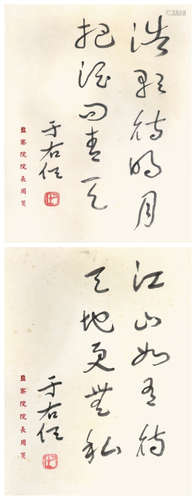 浩歌待明月
把酒問青天
于右任
監察院院長用箋
江山如有待
天地更無私
于右任
監察院院長用箋